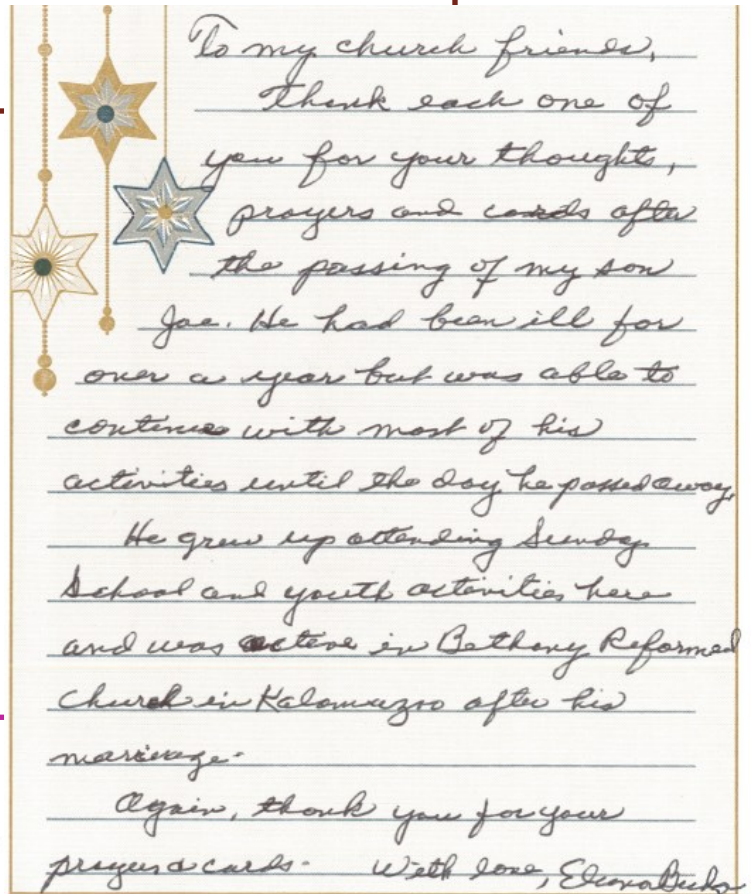 To my church friends,
Thank each one of
you for your thoughts,
prayers and cards after
the passing of my son
Joe. He had been ill for
over a year but was able to
continue with most of his
activities until the day he passed away.
He grew up attending Sunday
School and youth activities here
and was active in Bethany Reformed
Church in Kalamazoo after his
marriage.
Again, thank you for your
prayers & cards. With love,